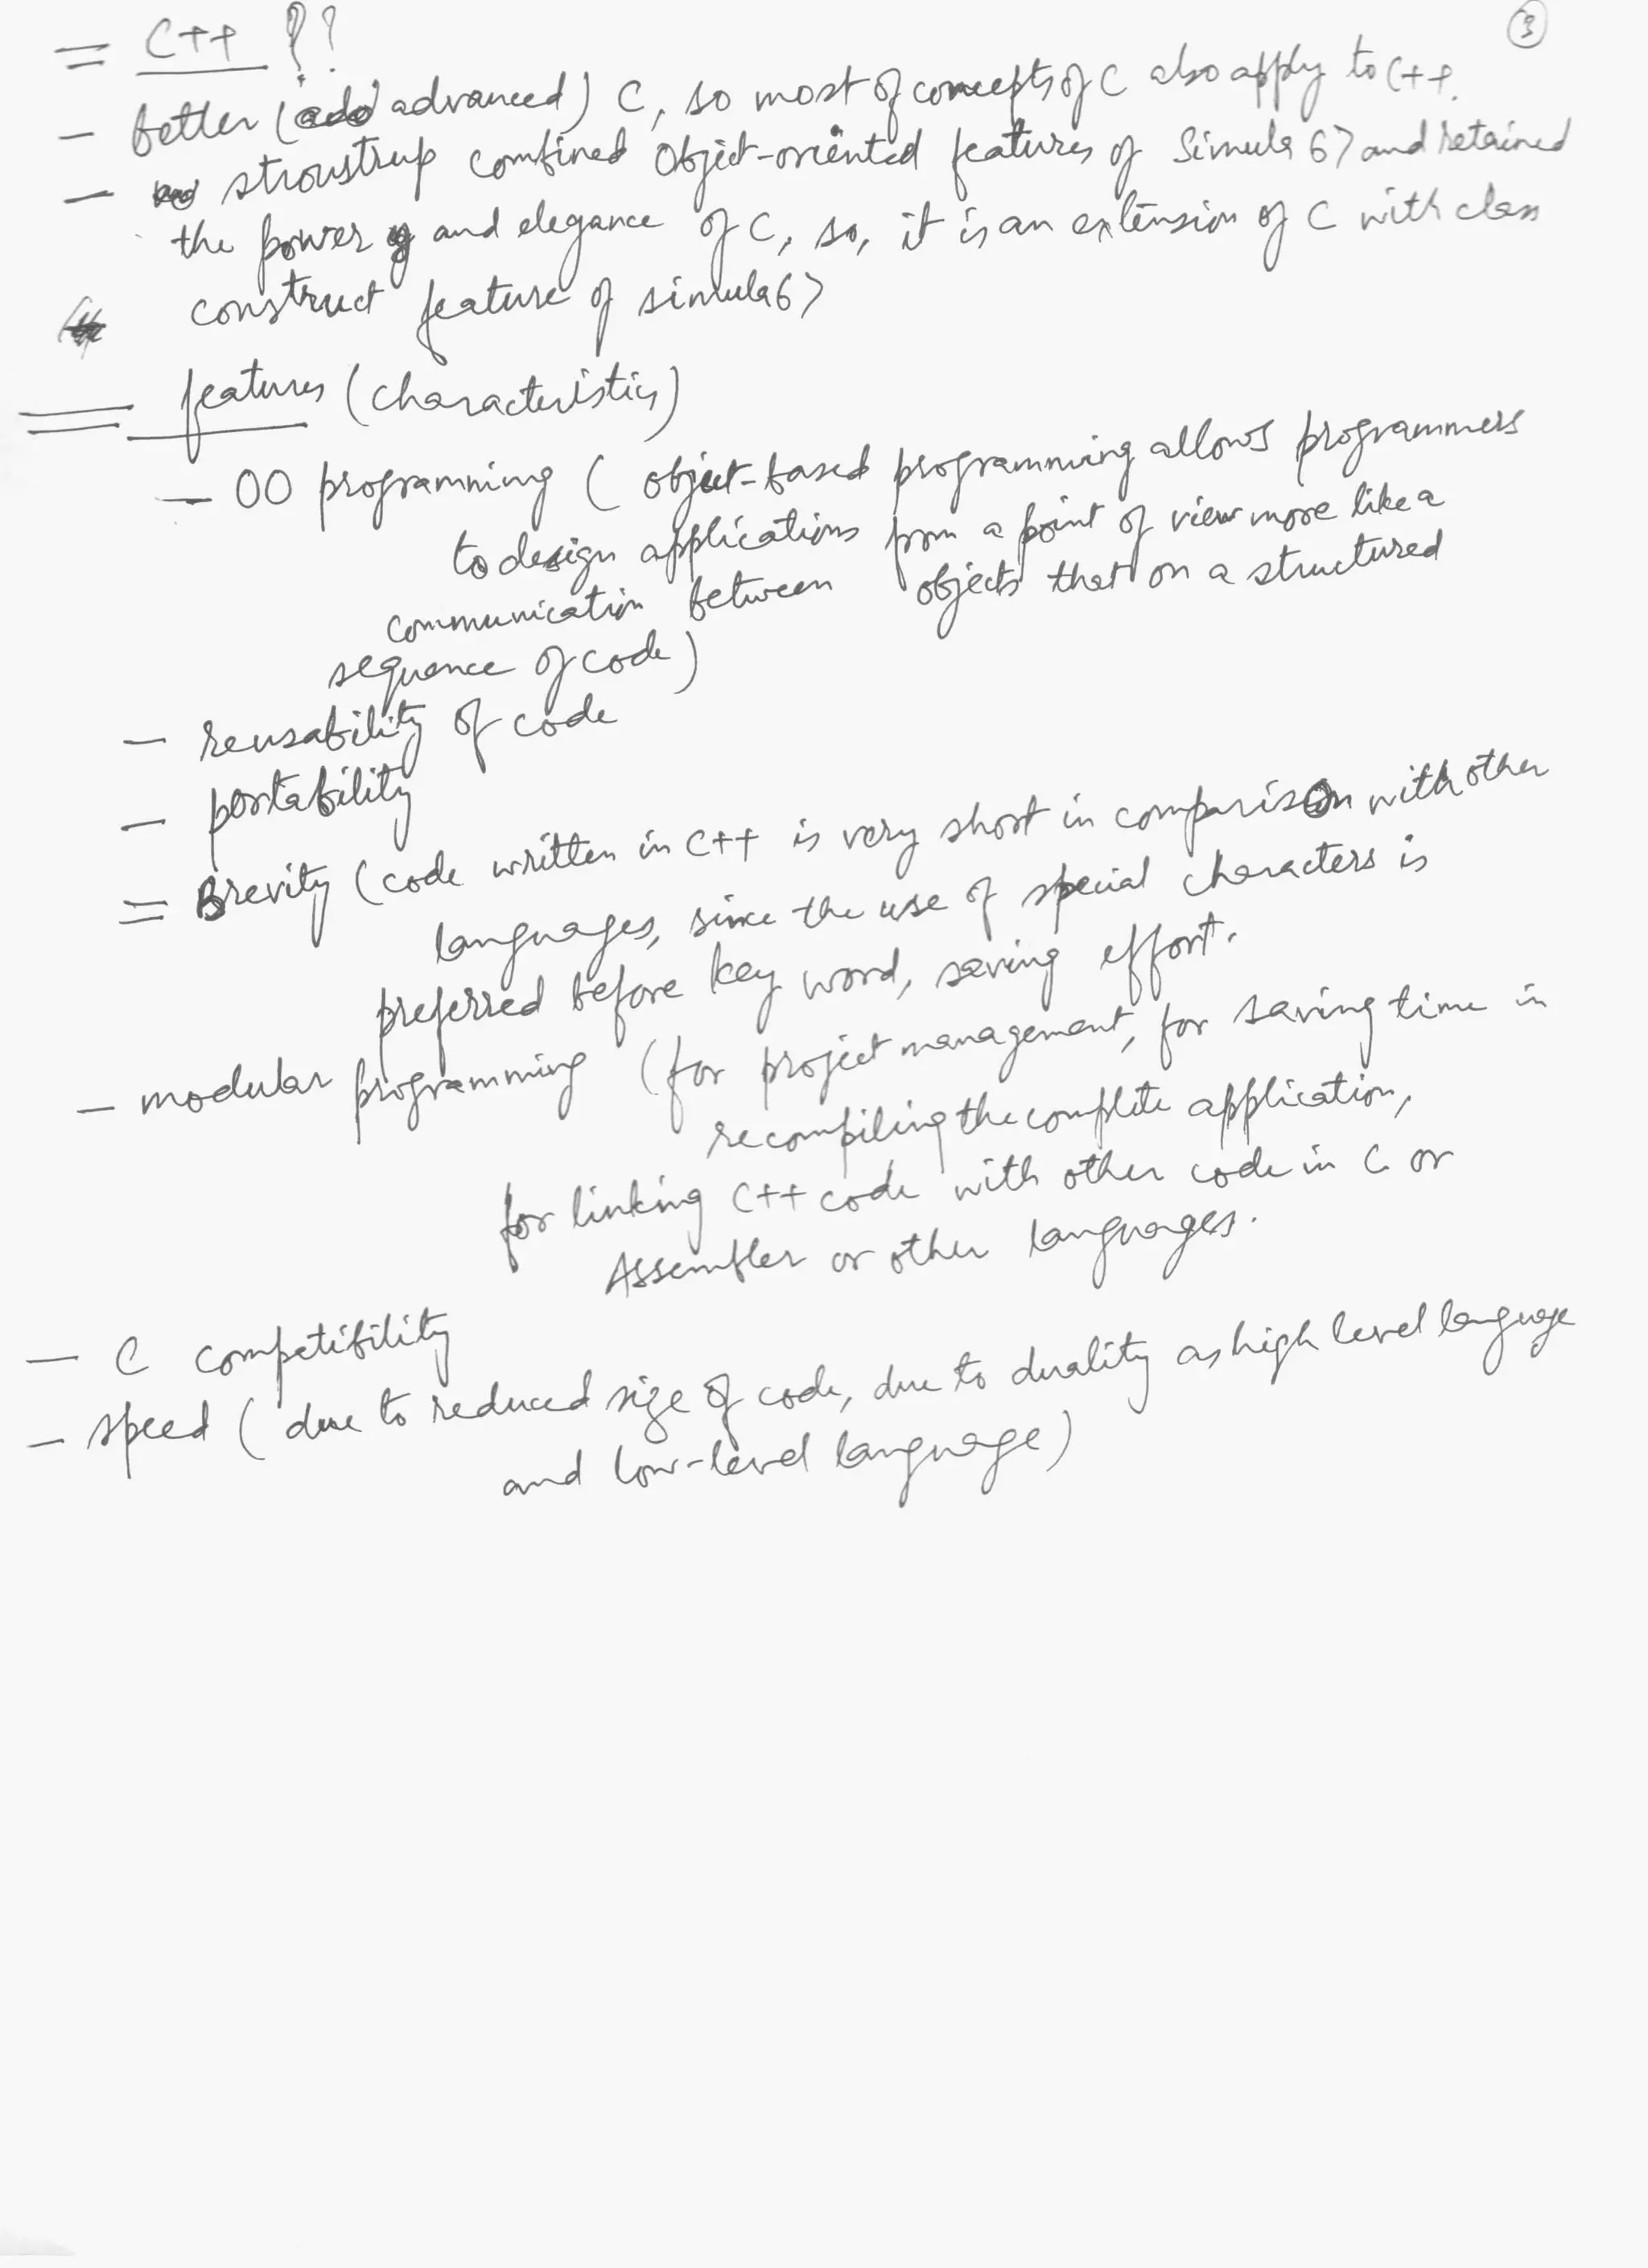 ③
= C++ ??
- better (advanced) C, so most of concepts of C also apply to C++.
- stroustrup combined Object-oriented features of Simula 67 and retained
the power and elegance of C, so, it is an extension of C with class
construct feature of simula67
= features (characteristics)
- OO programming ( object-based programming allows programmers
to design applications from a point of view more like a
communication between objects that on a structured
sequence of code)
- reusability of code
- portability
= Brevity (code written in C++ is very short in comparison with other
languages, since the use of special characters is
preferred before key word, saving effort.
- modular programming (for project management, for saving time in
recompiling the complete application,
for linking C++ code with other code in C or
Assembler or other languages.
- C compatibility
- speed ( due to reduced size of code, due to duality as high level language
and low-level language)